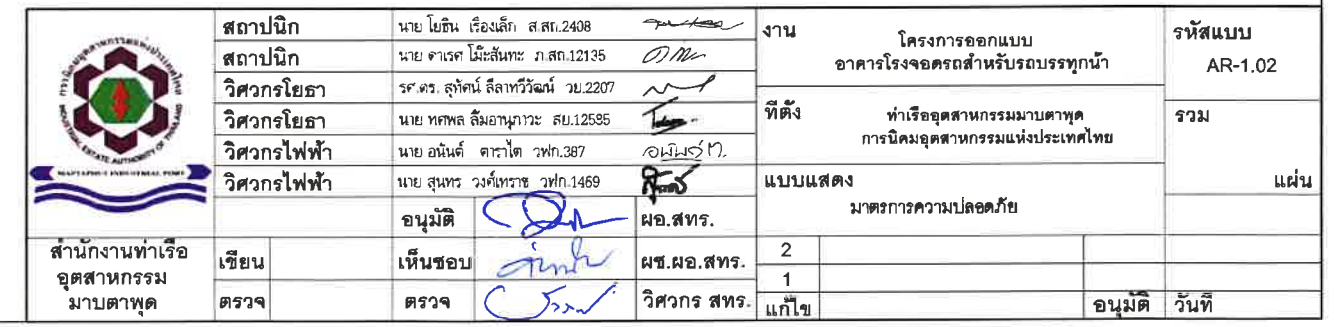 การนิคมอุตสาหกรรมแห่งประเทศไทย
INDUSTRIAL ESTATE AUTHORITY OF THAILAND
MAPTAPHUT INDUSTRIAL PORT
สำนักงานท่าเรือ
อุตสาหกรรม
มาบตาพุด
สถาปนิก นาย โยธิน เรืองเล็ก ส.สถ.2408
สถาปนิก นาย ดาเรศ โม๊ะสันทะ ภ.สถ.12135
วิศวกรโยธา รศ.ดร. สุทัศน์ ลีลาทวีวัฒน์ วย.2207
วิศวกรโยธา นาย ทศพล ลิ้มอานุภาวะ สย.12585
วิศวกรไฟฟ้า นาย อนันต์ ดาราไต วฟก.387
วิศวกรไฟฟ้า นาย สุนทร วงศ์เทราช วฟก.1469
อนุมัติ ผอ.สทร.
เขียน เห็นชอบ ผช.ผอ.สทร.
ตรวจ ตรวจ วิศวกร สทร.
งาน โครงการออกแบบ
อาคารโรงจอดรถสำหรับรถบรรทุกน้ำ
ที่ตั้ง ท่าเรืออุตสาหกรรมมาบตาพุด
การนิคมอุตสาหกรรมแห่งประเทศไทย
แบบแสดง
มาตรการความปลอดภัย
2
1
แก้ไข อนุมัติ วันที่
รหัสแบบ
AR-1.02
รวม
แผ่น